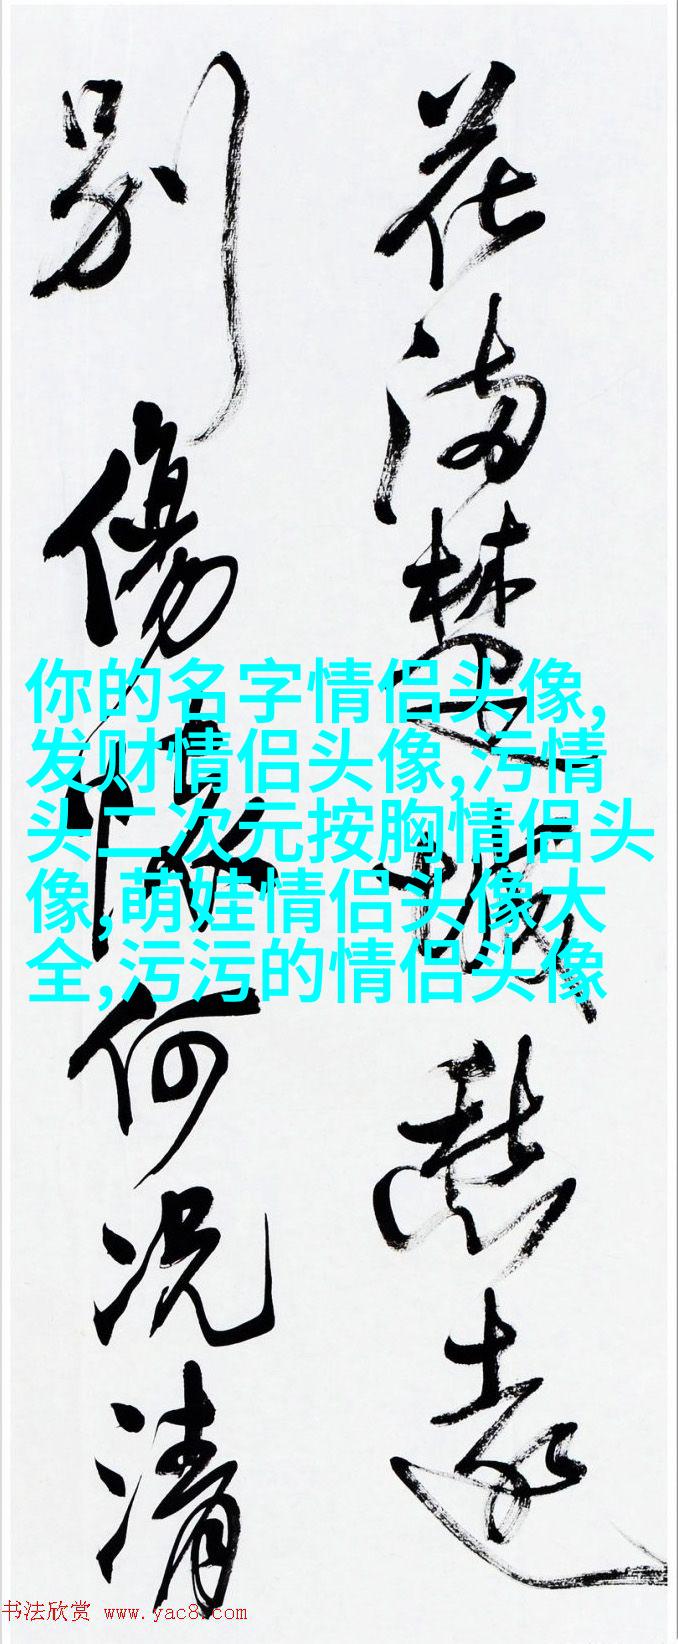 花满楚城愁远
别傷陽何况清
你的名字情侣头像,
发财情侣头像,污情
头二次元按胸情侣头
像,萌娃情侣头像大
全,污污的情侣头像
书法欣赏 www.yac8.com